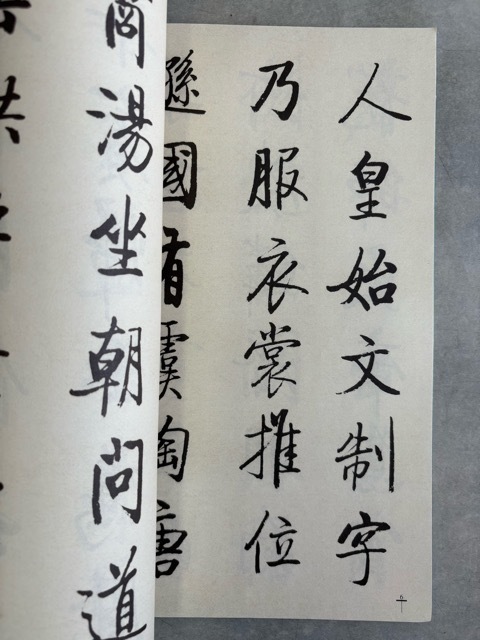 人皇始文制字
乃服衣裳推位
遜國有虞陶唐
商湯坐朝問道